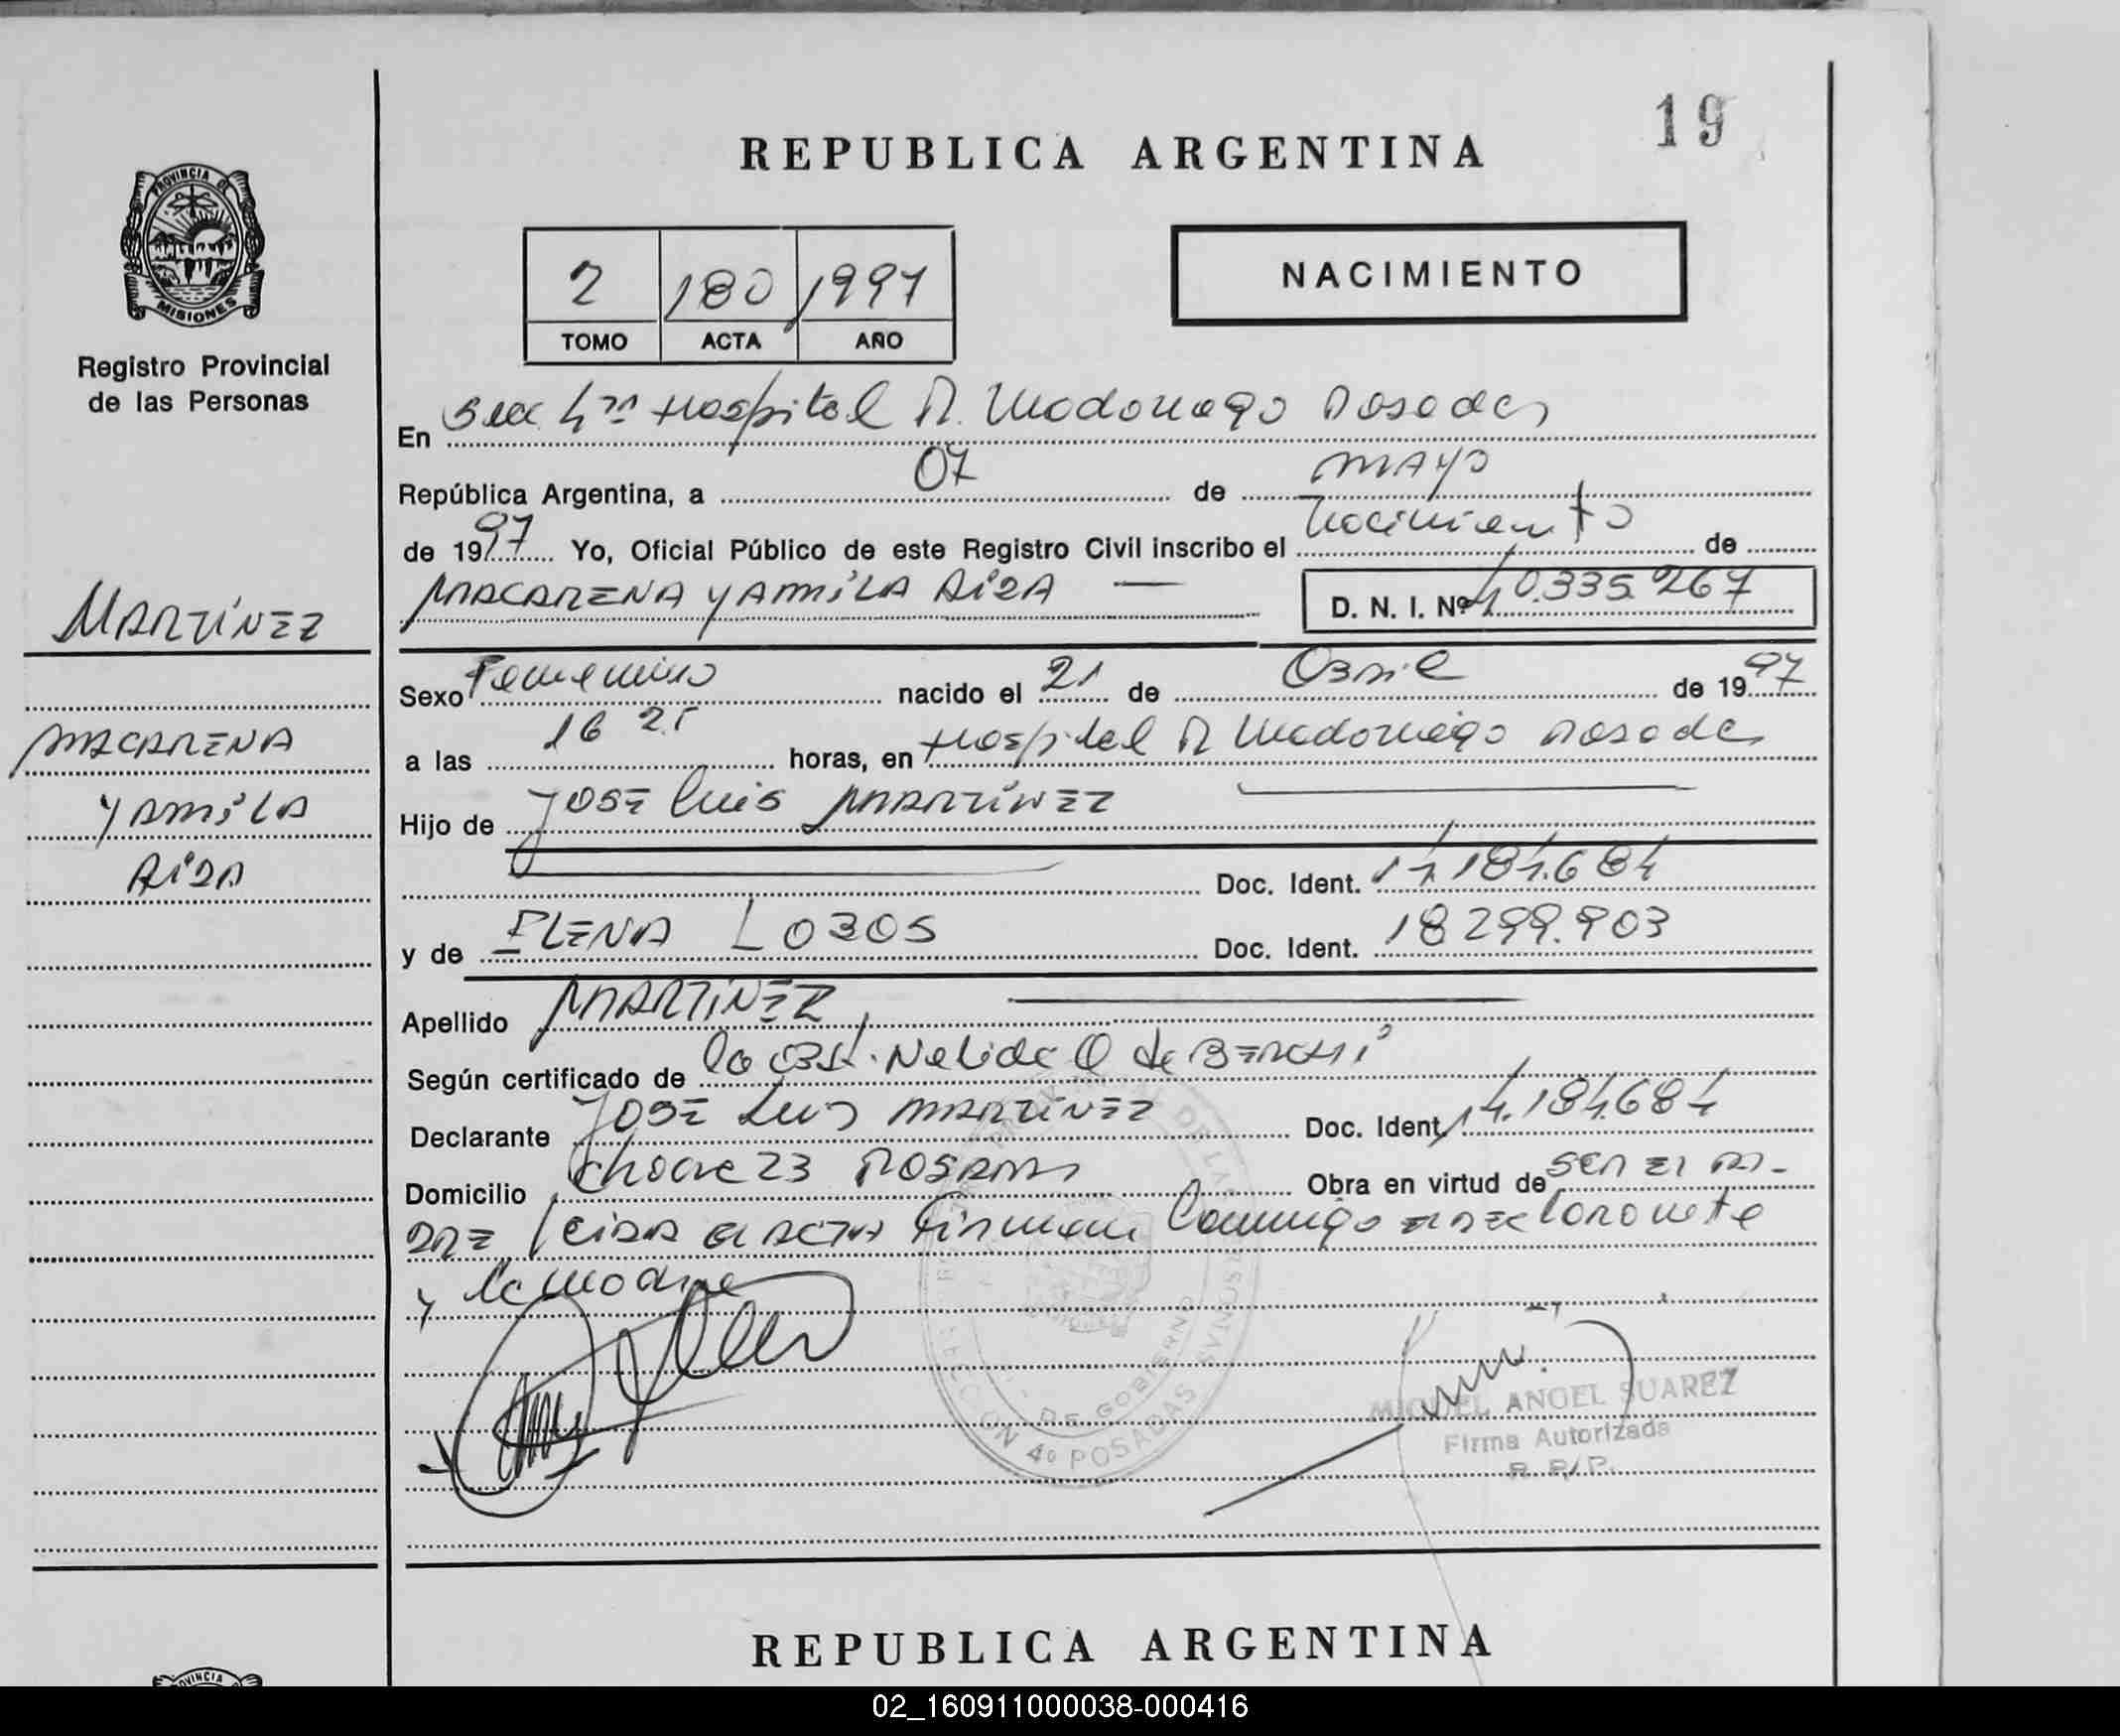 19
REPUBLICA ARGENTINA
PROVINCIA DE
MISIONES
Registro Provincial
de las Personas
2 180 1997
TOMO ACTA AÑO
NACIMIENTO
En Secc 4ta Hospital R. Madariaga Posadas
República Argentina, a 07 de mayo
de 1997 Yo, Oficial Público de este Registro Civil inscribo el nacimiento de
MACARENA YAMILA
D. N. I. Nº 40.335.267
MARTÍNEZ
MACARENA
YAMILA
Sexo Femenino nacido el 21 de Abril de 1997
a las 16 25 horas, en Hospital R Madariaga Posadas
Hijo de JOSE Luis MARTÍNEZ
Doc. Ident. 14.184.684
y de ELENA LOBOS Doc. Ident. 18.299.903
Apellido MARTINEZ
Según certificado de la Obst. Nelida O de
Declarante JOSE Luis MARTINEZ Doc. Ident. 14.184.684
Domicilio 23 POSADAS Obra en virtud de SER EL PA-
DRE Leida el ACTA Firman Conmigo el DECLARANTE
y la madre
DE GOBIERNO
SECCION 4º POSADAS
MIGUEL ANGEL SUAREZ
Firma Autorizada
R. P. P.
REPUBLICA ARGENTINA
02_160911000038-000416